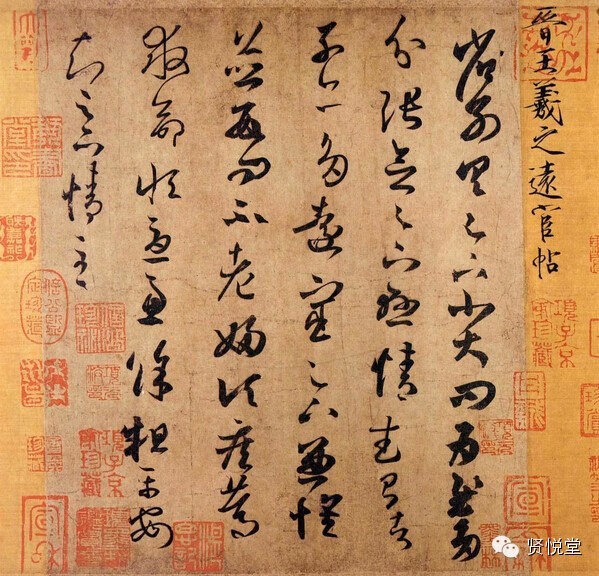 晉王羲之遠宦帖
省別具足下小大問為慰多
分張念足下懸情武昌諸
子亦多遠宦足下兼懷
並數問不老婦頃疾篤
救命恒憂慮餘粗平安
知足下情至
項子京家珍藏
贤悦堂